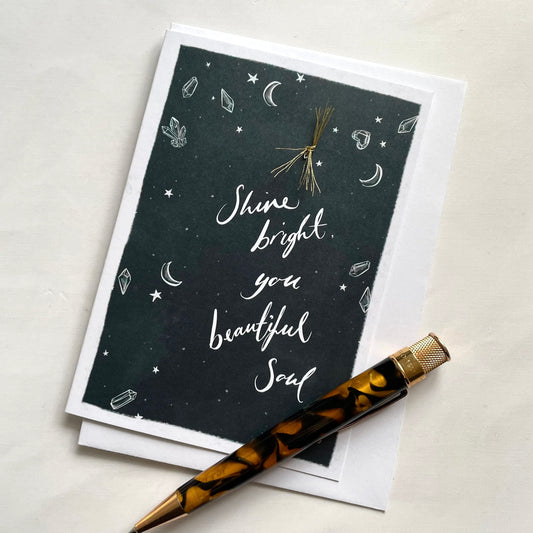 Shine
bright,
you
beautiful
Soul